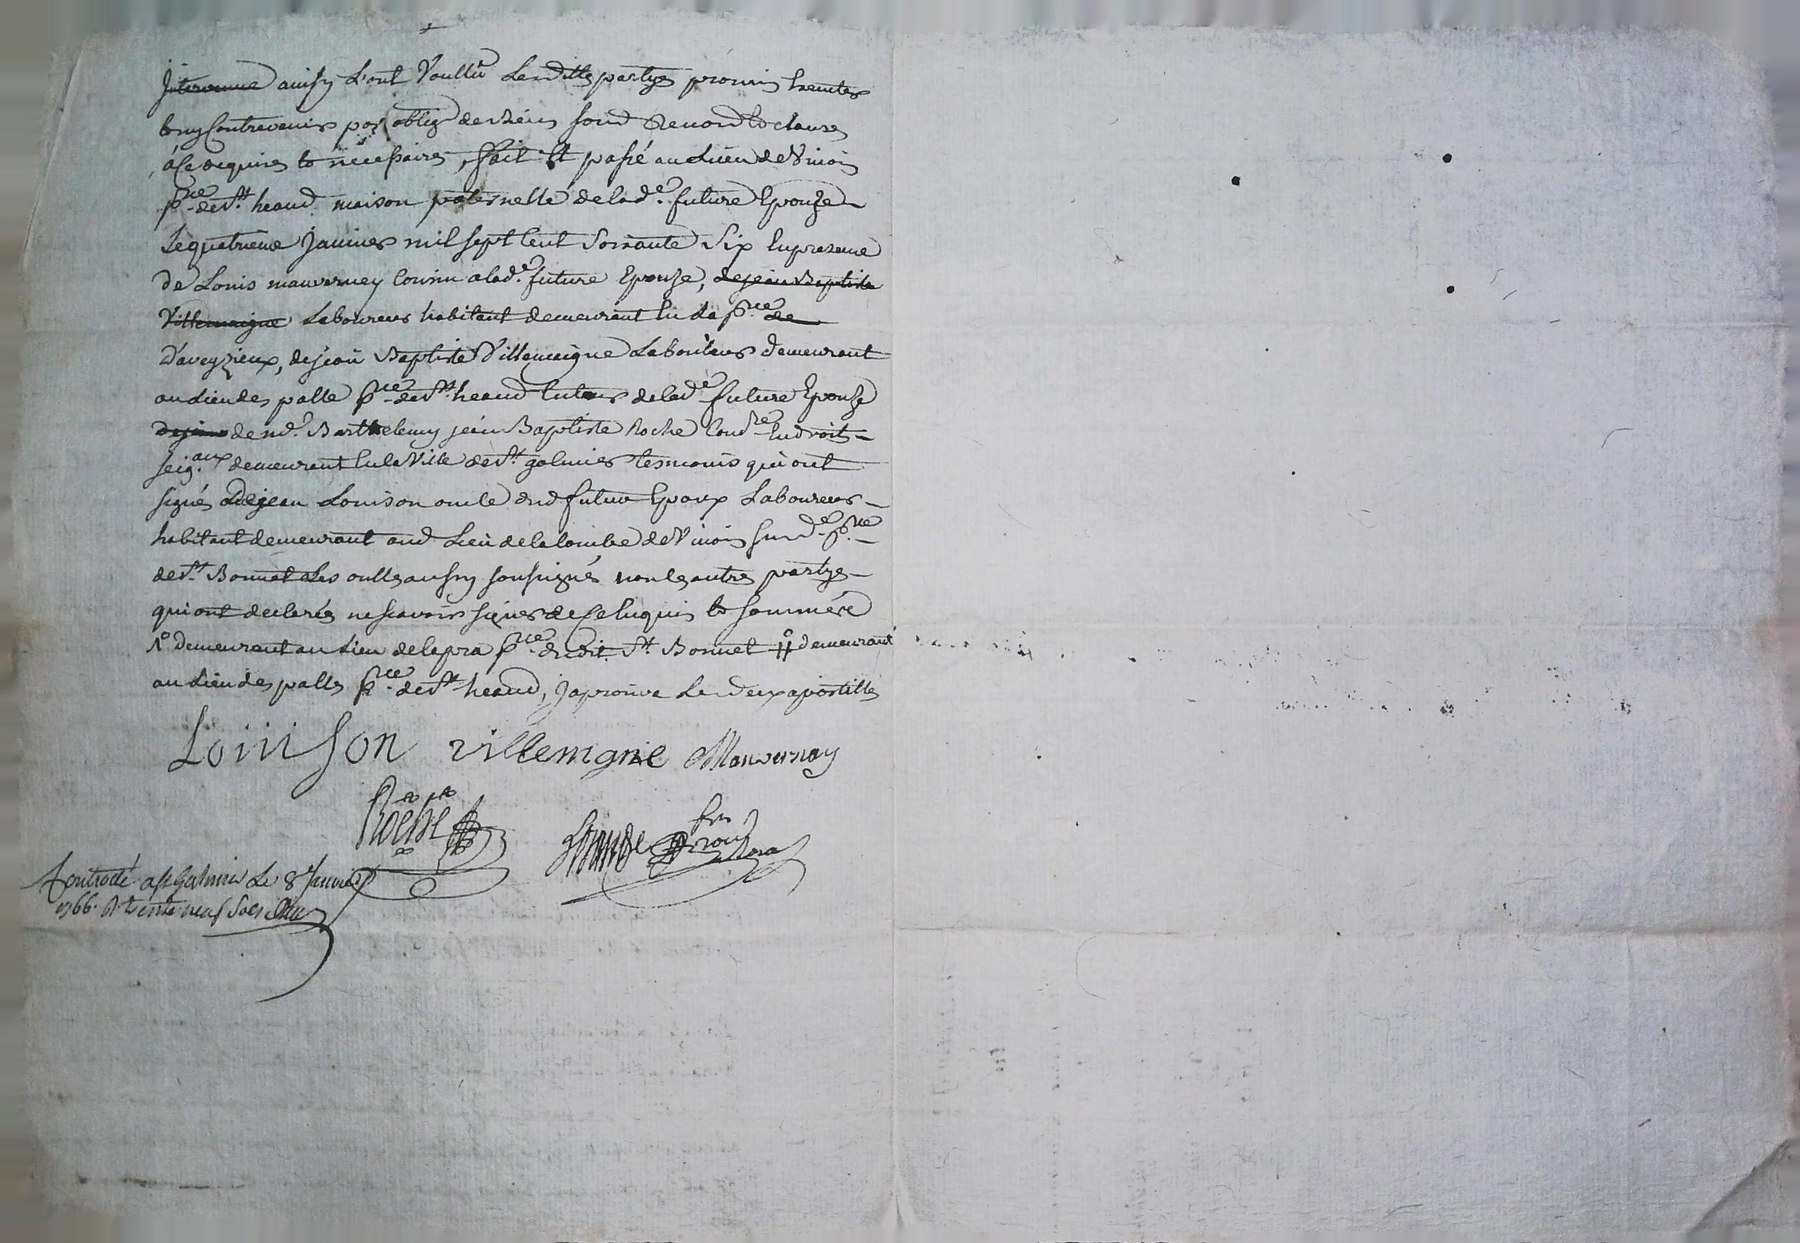 aussy L'ont Voullu Lesdittes partyes promis
Contrevenir par oblig. de biens soud. Renond. et clauses
à ce requises et nécessaires, fait Et passé au Lieu de Vinois
psse. de St. heand maison paternelle de lad.e future Epouze
Le quatrieme janvier mil sept Cent soixante six En presence
de Louis mauverney Cousin a lad.e future Epouze, de jean Baptiste
Villemaigne Laboureur habitant demeurant En la psse. de
D'aveyzieux, de jean Baptiste Villemaigne Laboureur demeurant
au Lieu des palle psse. de St. heand tuteur de lad.e future Epouze
de me. Barthelemy jean Baptiste Roche En droit
seig.aux demeurant En la Ville de St. galmier tesmoins qui ont
signés de jean Louison oncle dud futur Epoux Laboureur
habitant demeurant aud. Lieu de la Combe de Vinois surd.e psse.
de St. Bonnet Les oulles aussy soussignés non les autres partyes
qui ont declarés ne sçavoir signer de Ce Enquis Et sommés
1° demeurant au Lieu de la pra psse. dudit St. Bonnet # demeurant
au Lieu des palles psse. de St. heand, j'aprouve Les deux apostilles
Louison villemgne Mauvernay
Roche
Controlé a St Galmier Le 8e Janvier
1766. R. trente neuf sols